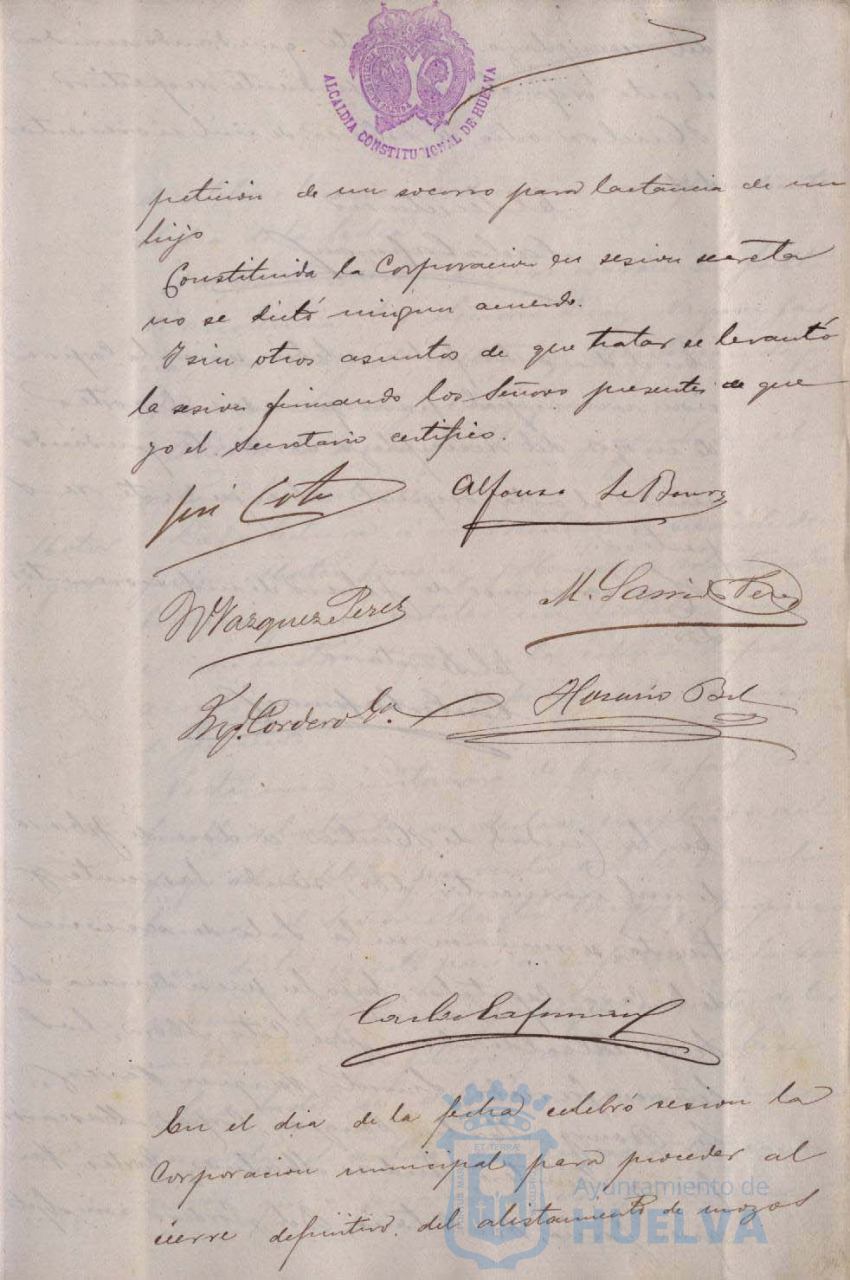 ALCALDIA CONSTITUCIONAL DE HUELVA
petición de un socorro para lactancia de un
hijo
Constituida la Corporacion en sesion secreta
no se dictó ningun acuerdo.
I sin otros asuntos de que tratar se levantó
la sesion firmando los Señores presentes de que
yo el Secretario certifico.
José Coto
Alfonso Le Bourg
Vazquez Perez
M. Garrido Perez
Cordero Ga.
Horacio Bel
En el dia de la fecha celebró sesion la
Corporacion municipal para proceder al
cierre definitivo del alistamiento de mozos
Ayuntamiento de
HUELVA